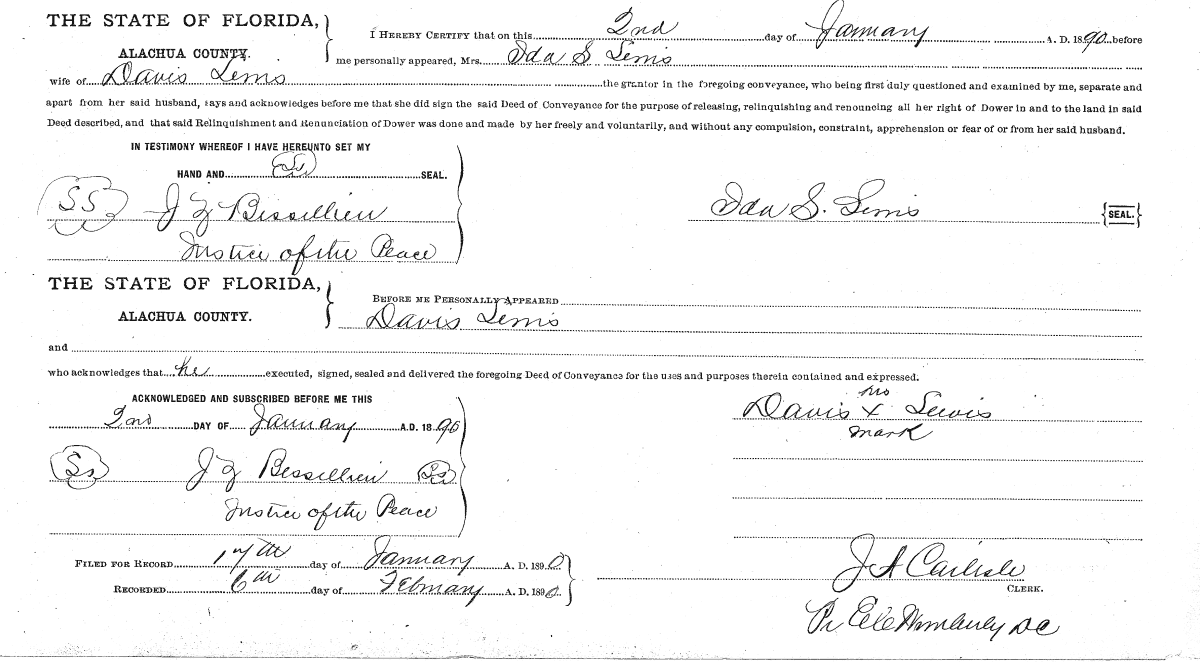 THE STATE OF FLORIDA,
ALACHUA COUNTY.
I HEREBY CERTIFY that on this 2nd day of January A. D. 1890 before
me personally appeared, Mrs. Ida S Lewis
wife of Davis Lewis the grantor in the foregoing conveyance, who being first duly questioned and examined by me, separate and
apart from her said husband, says and acknowledges before me that she did sign the said Deed of Conveyance for the purpose of releasing, relinquishing and renouncing all her right of Dower in and to the land in said
Deed described, and that said Relinquishment and Renunciation of Dower was done and made by her freely and voluntarily, and without any compulsion, constraint, apprehension or fear of or from her said husband.
IN TESTIMONY WHEREOF I HAVE HEREUNTO SET MY
HAND AND Ss SEAL.
SS J Bessellieu
Ida S. Lewis {SEAL.}
Justice of the Peace
THE STATE OF FLORIDA,
ALACHUA COUNTY.
BEFORE ME PERSONALLY APPEARED
Davis Lewis
and
who acknowledges that he executed, signed, sealed and delivered the foregoing Deed of Conveyance for the uses and purposes therein contained and expressed.
ACKNOWLEDGED AND SUBSCRIBED BEFORE ME THIS
2nd DAY OF January A.D. 1890
his
Davis x Lewis
mark
Ss J Bessellieu Ss
Justice of the Peace
FILED FOR RECORD 17th day of January A. D. 1890
RECORDED 6th day of February A. D. 1890
J A Carlisle
CLERK.
Pr DC